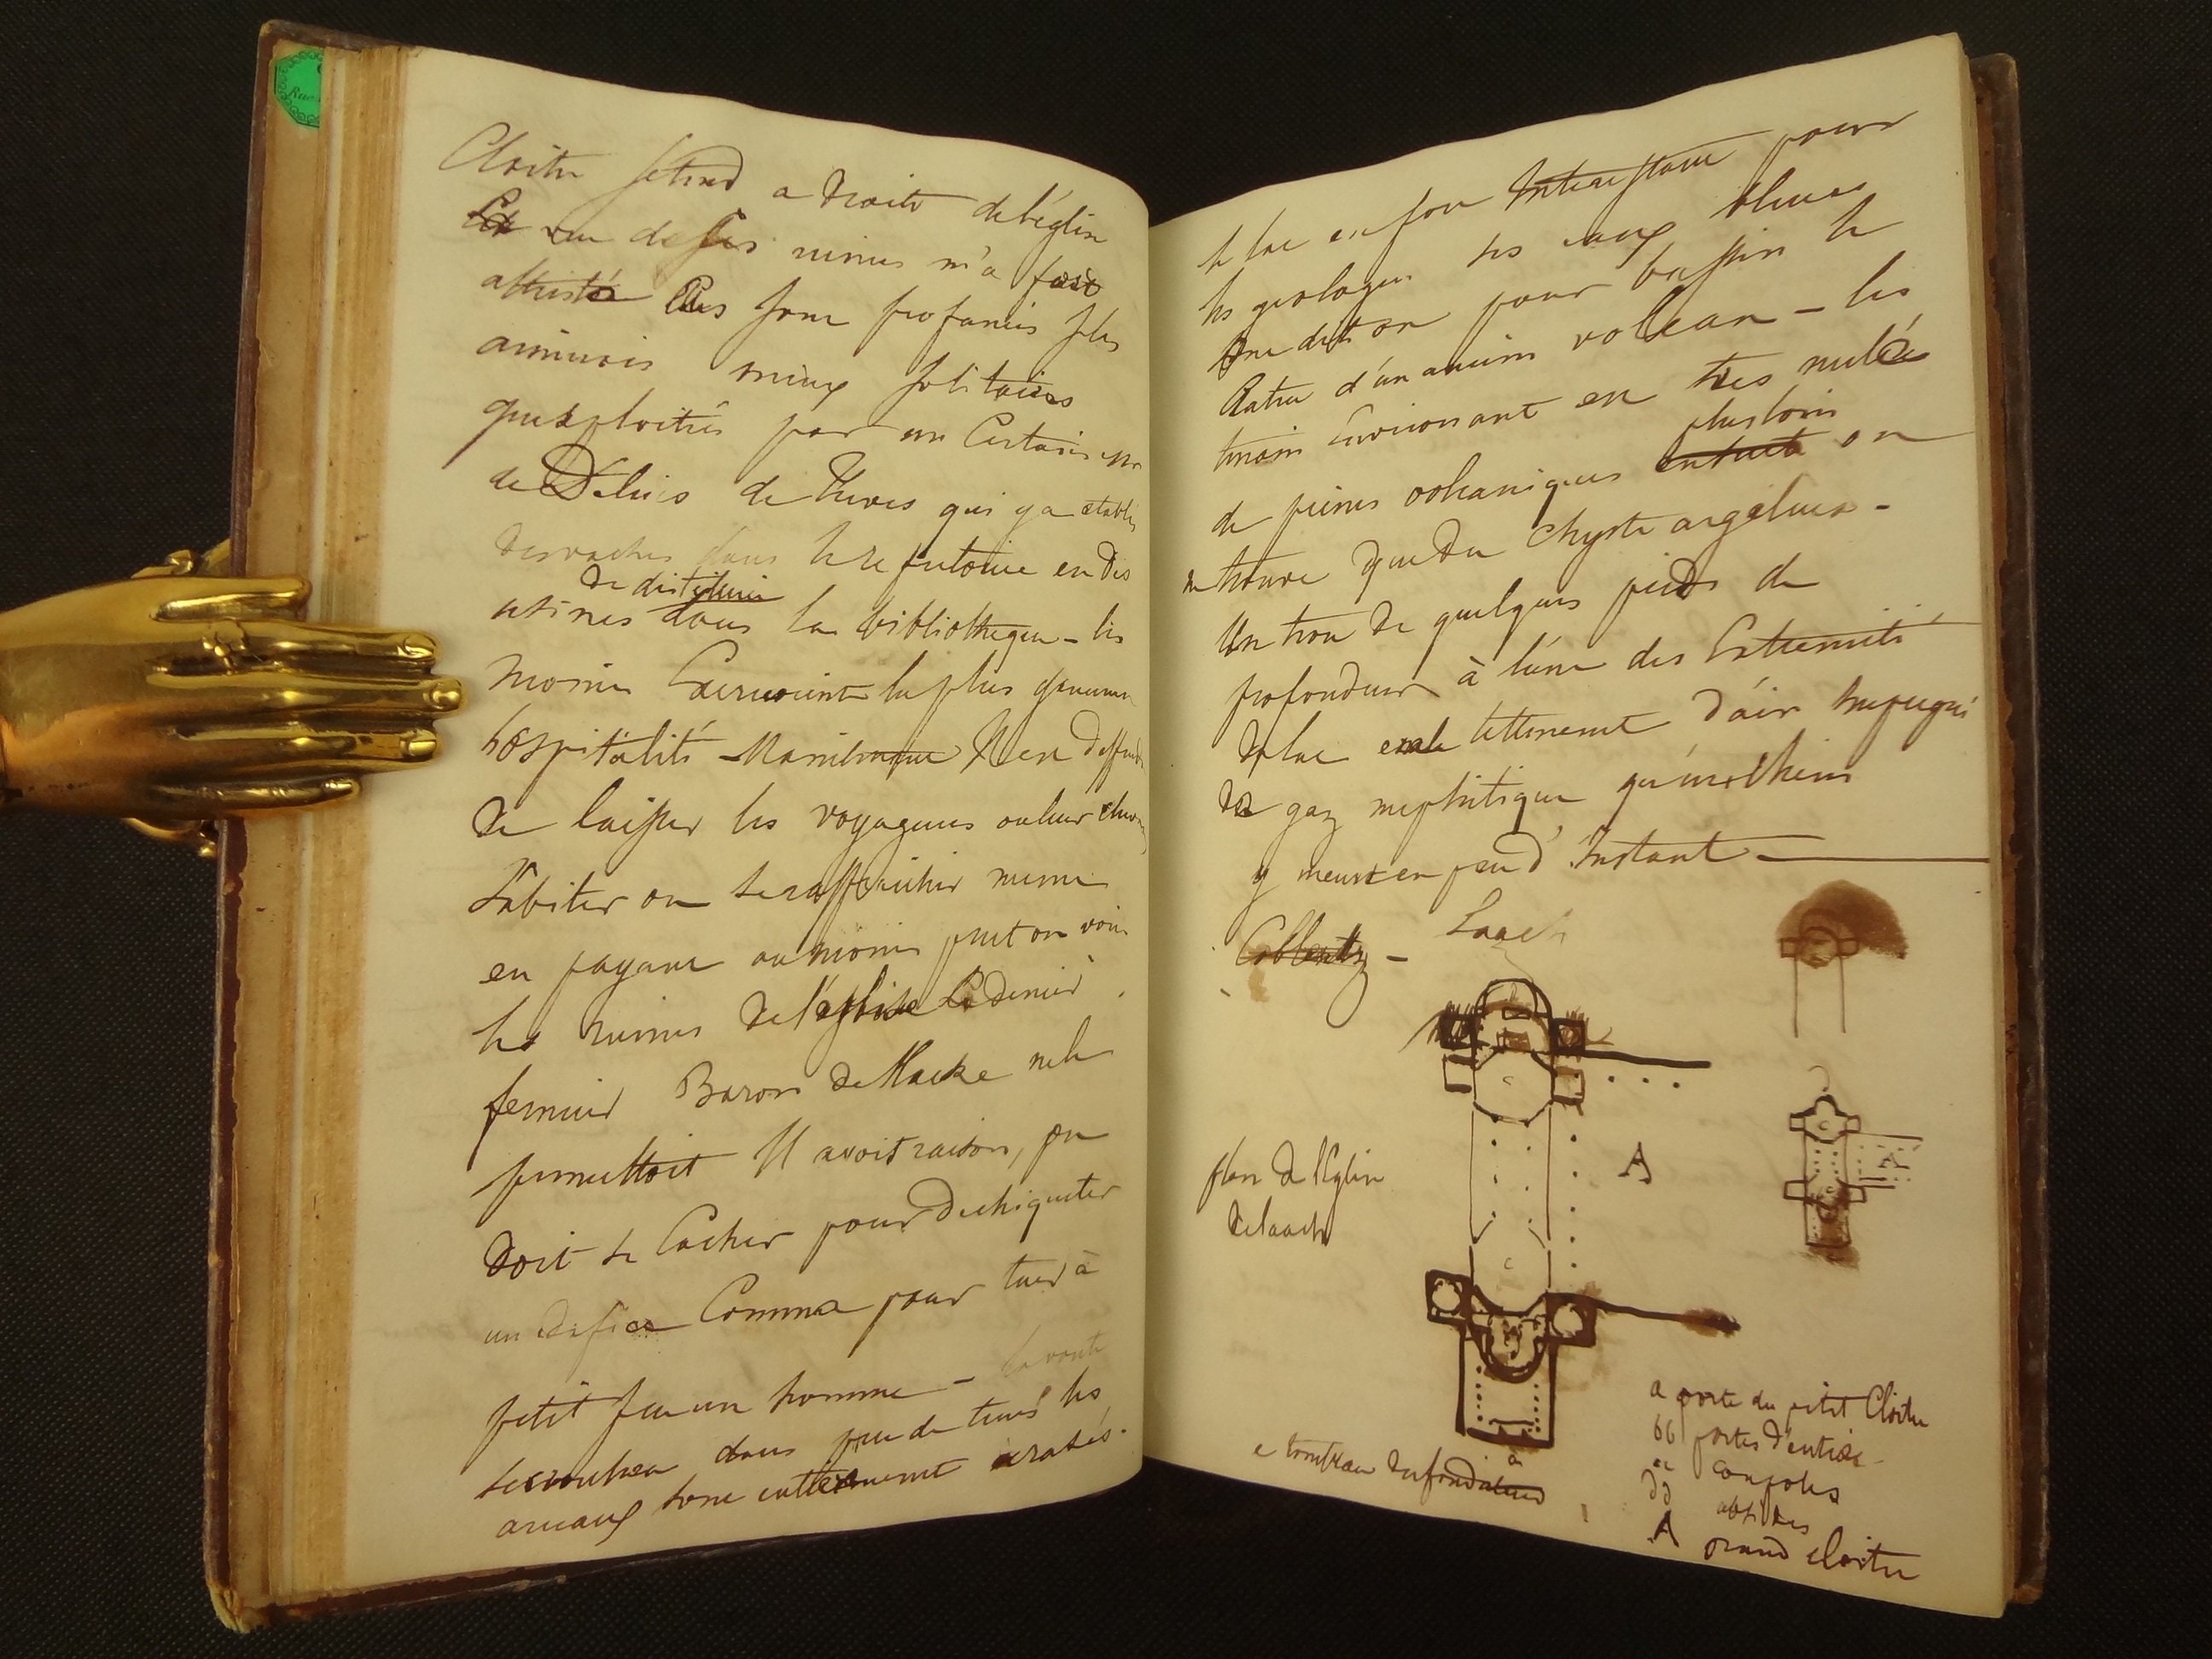 Cloitre setend a droite de l'église
La vue de ses ruines m'a fait
attristé Elles sont profanées je les
aimerois mieux solitaires
qu'exploitées par un certain
de Delius de Treves qui y a etabli
des vaches dans le refectoire et des
de distillerie
usines dans la bibliotheque - les
moines Exercoient la plus
hospitalité - Maintenant Il est deffendu
de laisser les voyageurs ou leurs
s'abiter ou se raffraichir meme
en payant au moins peut on voir
les ruines de l'église Le dernier
fermier Baron de Macke ne le
permettoit Il avoit raison, on
doit se Cacher pour dechiqueter
un edifice Comme pour tuer à
petit feu un homme - la voute
secroulera dans peu de tems les
arceaux sont entierement ecrasés.
le lac est fort Interessant pour
les geologues ses eaux bleues
ont dit on pour bassin le
Cratere d'un ancien volcan - les
terrain Environant est tres melée
plus loin
de pierres volcaniques on
ne trouve que du Chyste argeleux -
Un trou de quelques pieds de
profondeur à l'une des Extremité
du lac exale tellement d'air
de gaz mephitique qu'un chien
y meurt en peu d'Instant -
Coblentz - Laach
A
A
plan de l'Eglise
de Laach
a
e tombeau du fondateur
a porte du petit Cloitre
bb portes d'entrée
cc coupoles
dd absides
A grand cloitre